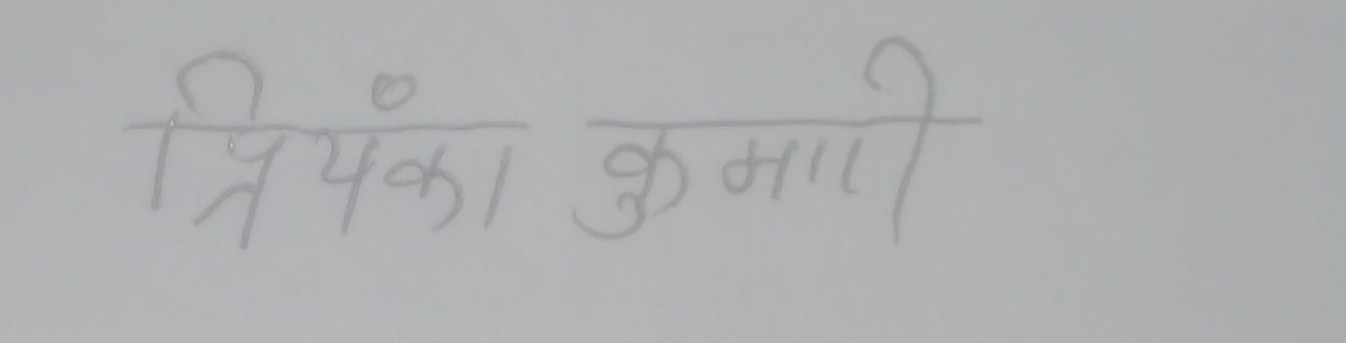 त्रियंका कुमारी